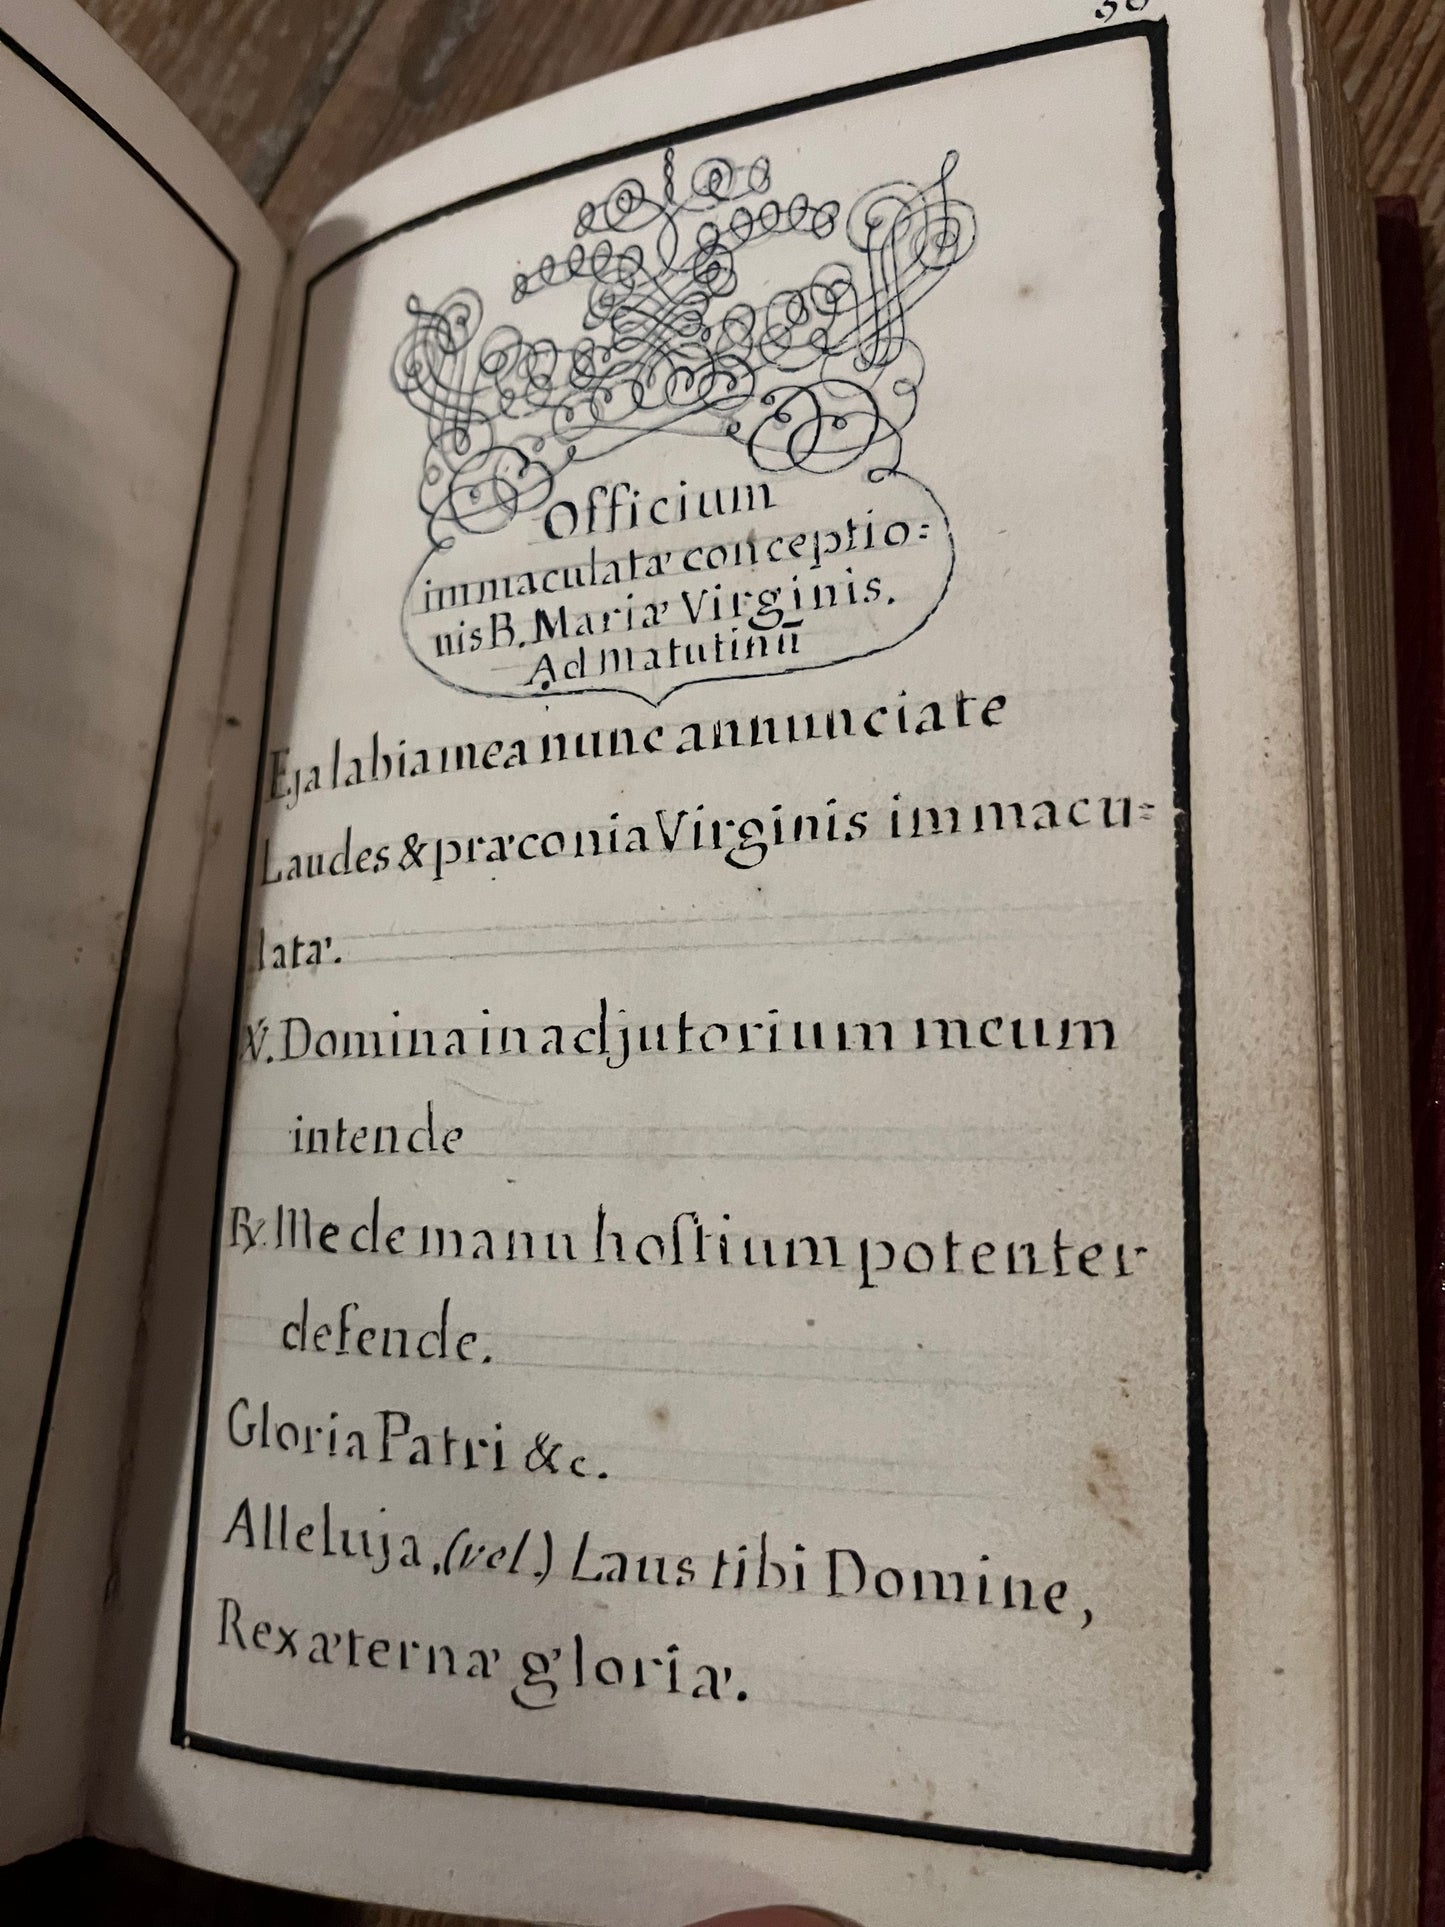 Officium
immaculatæ conceptio=
nis B. Mariæ Virginis.
Ad Matutinū
Eja labia mea nunc annunciate
Laudes & præconia Virginis immacu=
latæ.
℣. Domina in adjutorium meum
intende
℟. Me de manu hoſtium potenter
defende.
Gloria Patri &c.
Alleluja, (vel.) Laus tibi Domine,
Rex æternæ gloriæ.